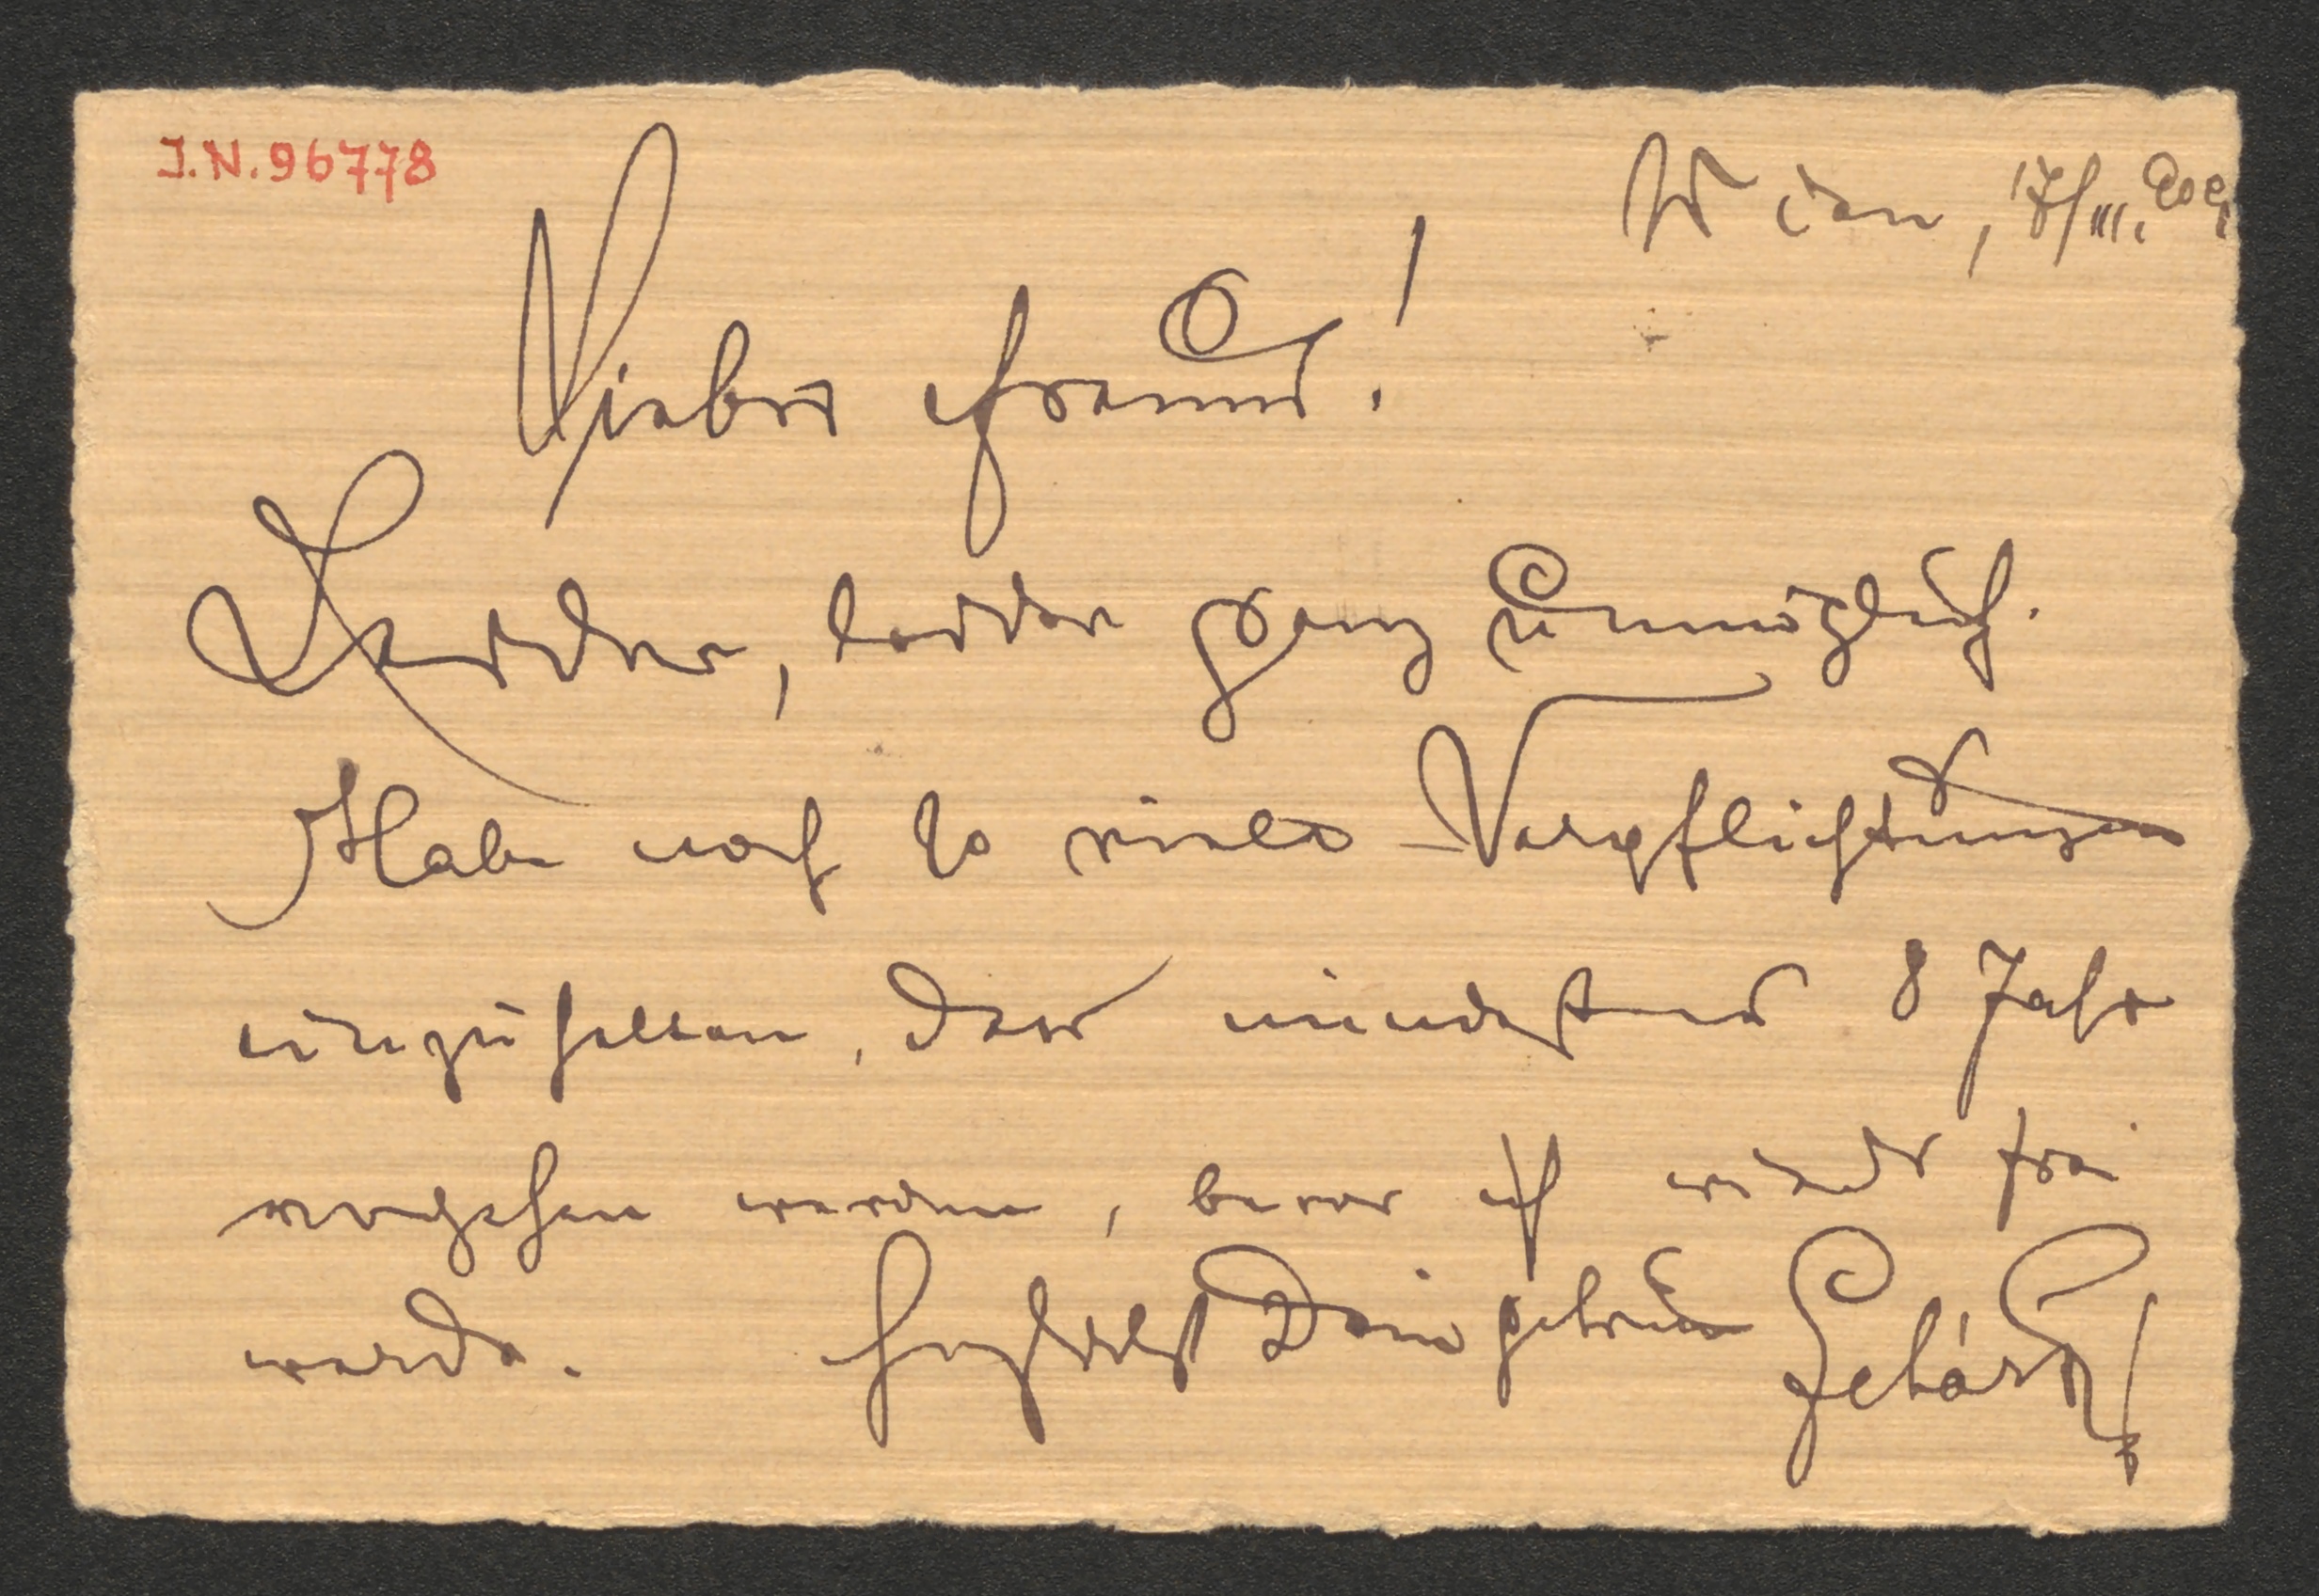 J.N. 96778
Wien, 17/III.
Lieber Freund!
Leider, leider ganz unmöglich.
Habe noch so viele Verpflichtungen
einzuhalten, dass mindestens 8 Jahre
vergehen werden, bevor ich wieder frei
werde. Herzlichst Dein getreuer Lehár